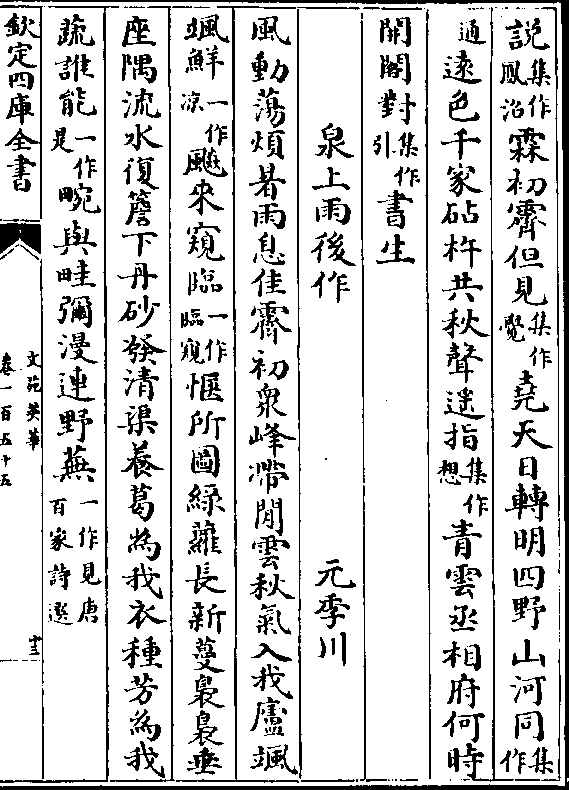 説集作鳳沼霖初霽但見集作覺堯天日轉明四野山河同集作
通遠色千家砧杵共秋聲遥指集作想青雲丞相府何時
開閣對集作引書生
泉上雨後作 元季川
風動蕩煩暑雨息佳霽初衆峰帶閒雲秋氣入我廬颯
颯鮮一作凉飈來窺臨一作臨窺愜所圖綠蘿長新蔓裊裊垂
座隅流水復簷下丹砂發清渠養葛為我衣種芳為我
蔬誰能一作是畹與畦彌漫連野蕪一作見唐百家詩選
欽定四庫全書
文苑英華
卷一百五十五
十三